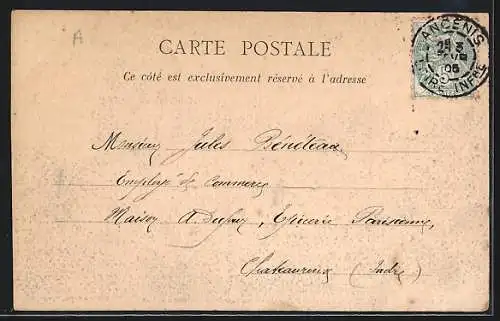 A
CARTE POSTALE
Ce côté est exclusivement réservé à l'adresse
ANCENIS
LOIRE INFRE
05
Monsieur Jules Bénéteau
Employé de Commerce
Maison A. Dufour, Epicerie Parisienne,
Chateauroux (Indre)